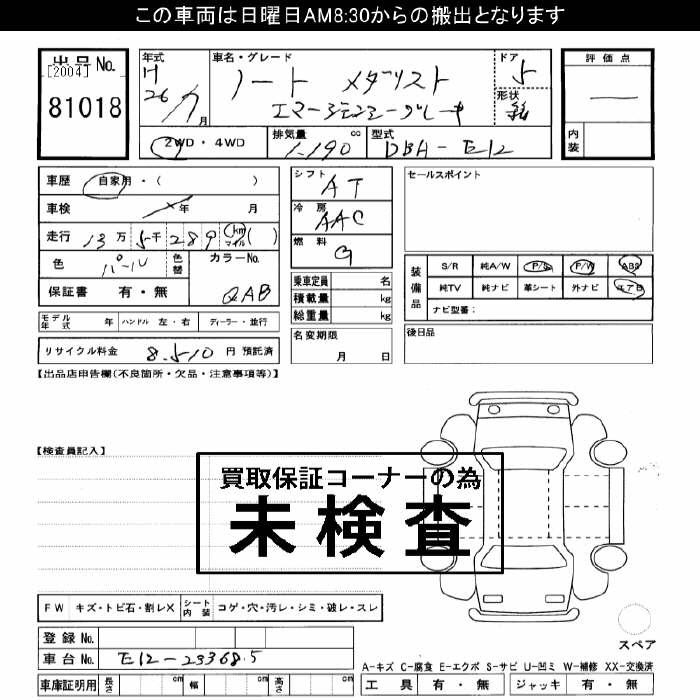 この車両は日曜日AM8:30からの搬出となります
出品No.
[2004]
81018
年式
H
26/7月
車名・グレード
ノート メダリスト
エマージェンシーブレーキ
ドア
5
形状
評価点
内装
2WD・4WD
排気量 cc
1,190
型式
DBA-E12
車歴 自家用・( )
車検 年 月
走行 13万5千289 km マイル ( )
色 パール 色替
カラーNo.
QAB
保証書 有・無
モデル年式 年 ハンドル 左・右 ディーラー・並行
リサイクル料金 8,510 円 預託済
シフト
AT
冷房
AAC
燃料
G
乗車定員 名
積載量 kg
総重量 kg
名変期限
月 日
セールスポイント
装備品
S/R 純A/W P/S P/W ABS
純TV 純ナビ 革シート 外ナビ エアB
ナビ型番:
後日品
【出品店申告欄(不良箇所・欠品・注意事項等)】
【検査員記入】
買取保証コーナーの為
未検査
FW キズ・トビ石・割レX シート内装 コゲ・穴・汚レ・シミ・破レ・スレ
登録No.
車台No. E12-233685
車庫証明用 長さ cm 幅 cm 高さ cm
スペア
A-キズ C-腐食 E-エクボ S-サビ U-凹ミ W-補修 XX-交換済
工具 有・無 ジャッキ 有・無